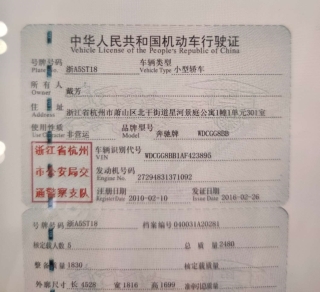 中华人民共和国机动车行驶证
Vehicle License of the People's Republic of China
号牌号码 浙A5ST18 车辆类型 小型轿车
Plate No. Vehicle Type
所有人 戴芳
Owner
住址 浙江省杭州市萧山区北干街道星河景庭公寓1幢1单元301室
Address
使用性质 非营运 品牌型号 奔驰牌 WDCGG8BB
浙江省杭州市公安局交通警察支队
车辆识别代号 WDCGG8BB1AF423895
VIN
发动机号码 27294831371092
Engine No.
注册日期 2010-02-10 发证日期 2016-02-26
Register Date Issue Date
号牌号码 浙A5ST18 档案编号 040031A20281
核定载人数 5 总质量 2480
整备质量 1830 核定载质量
外廓尺寸 长 4528 宽 1816 高 1699 准牵引总质量